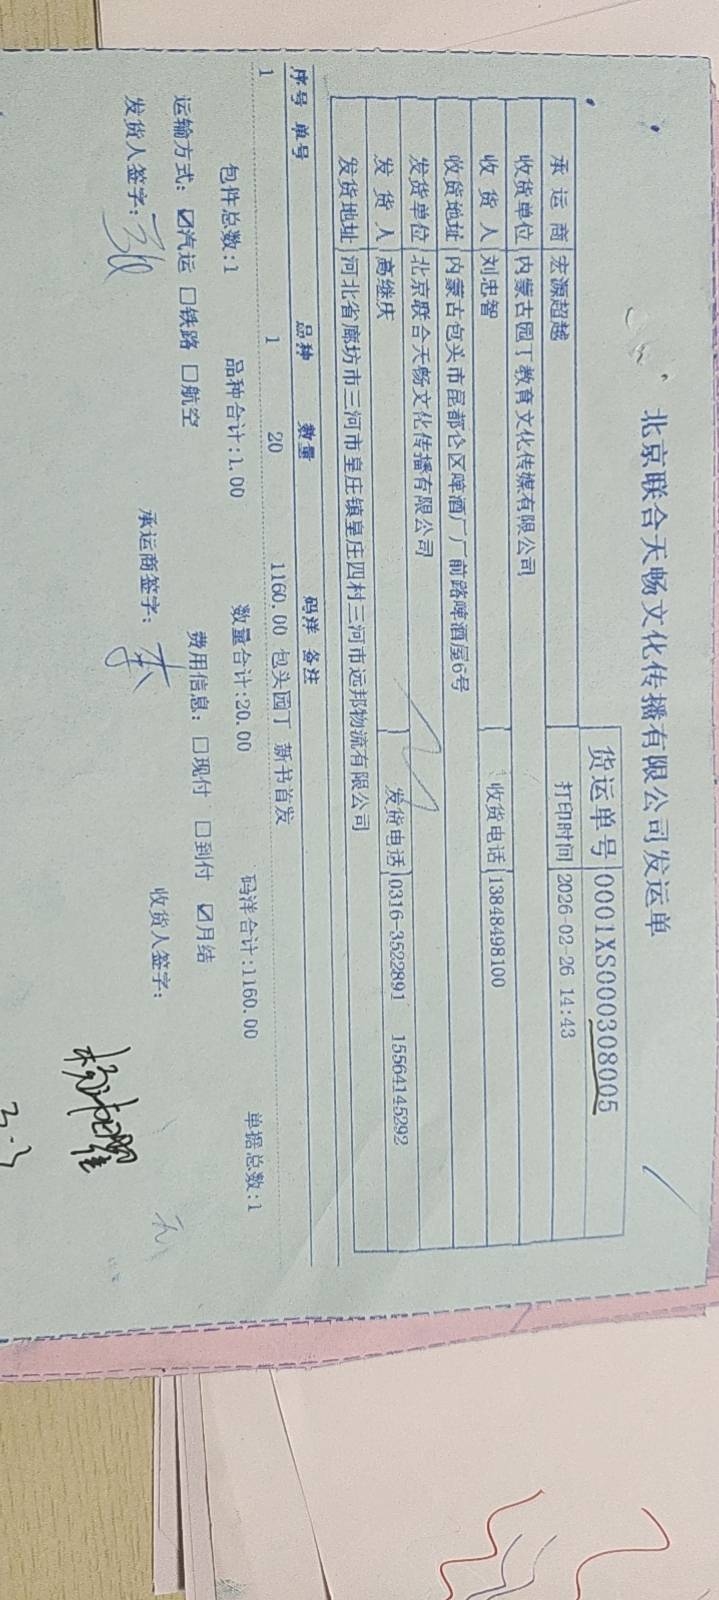 北京联合天畅文化传播有限公司发运单
货运单号 0001XS000308005
承运商 宏源超越 打印时间 2026-02-26 14:43
收货单位 内蒙古园丁教育文化传媒有限公司
收货人 刘忠智 收货电话 13848498100
收货地址 内蒙古包头市昆都仑区啤酒厂厂前路啤酒屋6号
发货单位 北京联合天畅文化传播有限公司
发货人 高继庆 发货电话 0316-3522891 15564145292
发货地址 河北省廊坊市三河市皇庄镇皇庄四村三河市远邦物流有限公司
序号 单号 品种 数量 码洋 备注
1 1 20 1160.00 包头园丁 新书首发
包件总数:1 品种合计:1.00 数量合计:20.00 码洋合计:1160.00 单据总数:1
运输方式: ☑汽运 □铁路 □航空 费用信息: □现付 □到付 ☑月结
发货人签字: 承运商签字: 李 收货人签字:
3.3